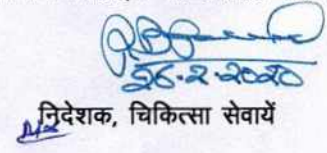 26-2-2020
निदेशक, चिकित्सा सेवायें